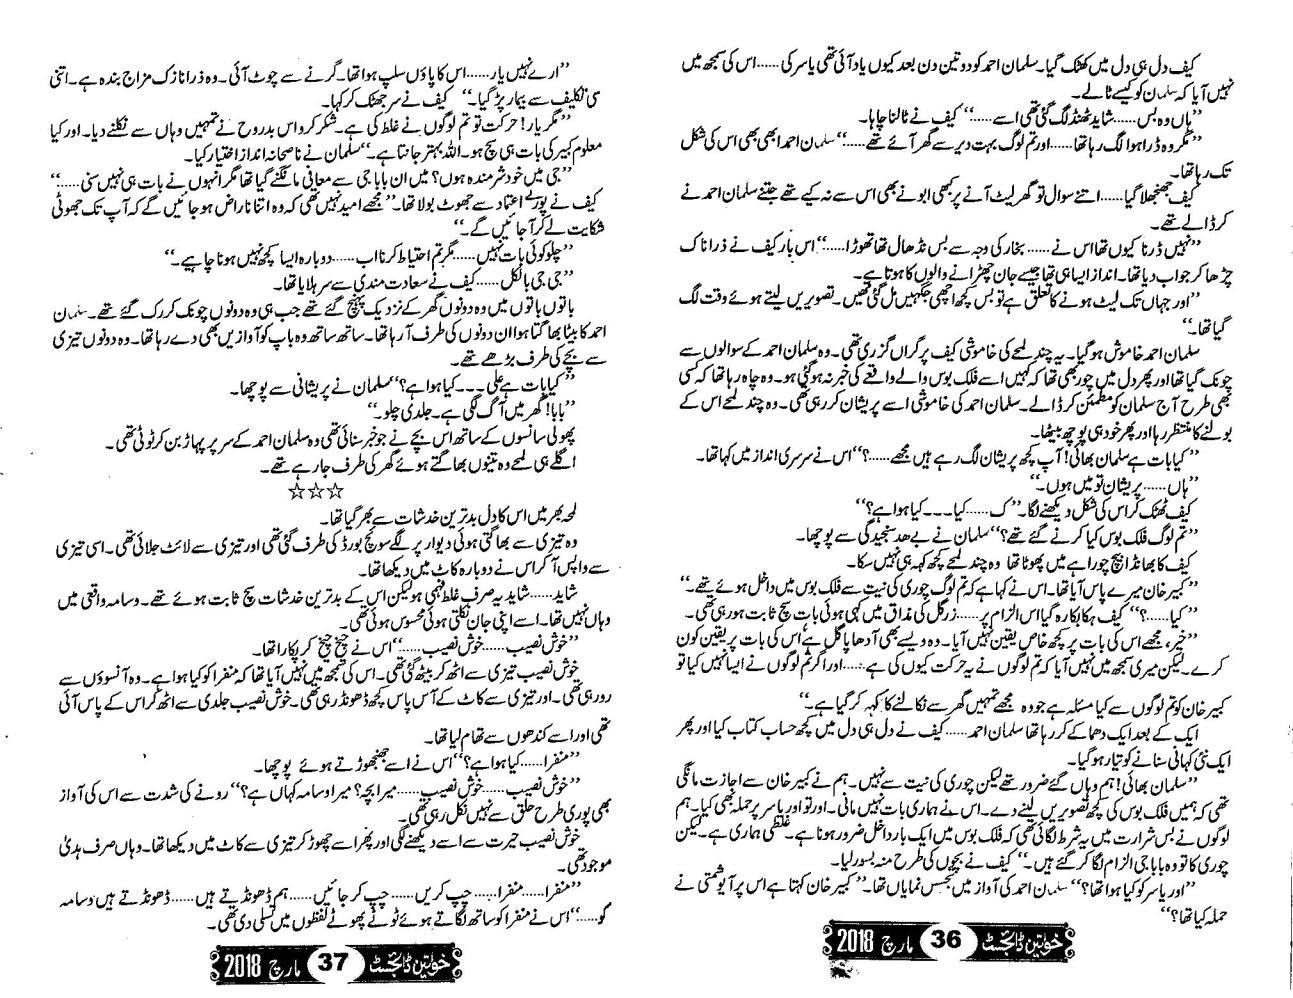 کیف دل ہی دل میں کھٹک گیا۔ سلمان احمد کو دو تین دن بعد کیوں یاد آئی تھی یاسر کی...... اس کی سمجھ میں
نہیں آیا کہ سلمان کو کیسے ٹالے۔
”ہاں وہ بس...... شاید ٹھنڈ لگ گئی تھی اسے......“ کیف نے ٹالنا چاہا۔
”مگر وہ ڈرا ہوا لگ رہا تھا...... اور تم لوگ بہت دیر سے گھر آئے تھے......“ سلمان احمد ابھی بھی اس کی شکل
تک رہا تھا۔
کیف جھنجھلا گیا...... اتنے سوال تو گھر لیٹ آنے پر کبھی ابو نے بھی اس سے نہ کیے تھے جتنے سلمان احمد نے
کر ڈالے تھے۔
”نہیں ڈرنا کیوں تھا اس نے...... بخار کی وجہ سے بس نڈھال تھا تھوڑا......“ اس بار کیف نے ذرا ناک
چڑھا کر جواب دیا تھا۔ انداز ایسا ہی تھا جیسے جان چھڑانے والوں کا ہوتا ہے۔
”اور جہاں تک لیٹ ہونے کا تعلق ہے تو بس کچھ اچھی جگہیں مل گئی تھیں۔ تصویریں لیتے ہوئے وقت لگ
گیا تھا۔“
سلمان احمد خاموش ہو گیا۔ یہ چند لمحے کی خاموشی کیف پر گراں گزری تھی۔ وہ سلمان احمد کے سوالوں سے
چونک گیا تھا اور پھر دل میں چور بھی تھا کہ کہیں اسے فلک بوس والے واقعے کی خبر نہ ہو گئی ہو۔ وہ چاہ رہا تھا کہ کسی
بھی طرح آج سلمان کو مطمئن کر ڈالے۔ سلمان احمد کی خاموشی اسے پریشان کر رہی تھی۔ وہ چند لمحے اس کے
بولنے کا منتظر رہا اور پھر خود ہی پوچھ بیٹھا۔
”کیا بات ہے سلمان بھائی! آپ کچھ پریشان لگ رہے ہیں مجھے......؟“ اس نے سرسری انداز میں کہا تھا۔
”ہاں...... پریشان تو میں ہوں۔“
کیف ٹھٹک کر اس کی شکل دیکھنے لگا۔ ”ک...... کیا۔۔۔ کیا ہوا ہے؟“
”تم لوگ فلک بوس کیا کرنے گئے تھے؟“ سلمان نے بے حد سنجیدگی سے پوچھا۔
کیف کا بھانڈا بیچ چوراہے میں پھوٹا تھا وہ چند لمحے کچھ کہہ ہی نہیں سکا۔
”کبیر خان میرے پاس آیا تھا۔ اس نے کہا ہے کہ تم لوگ چوری کی نیت سے فلک بوس میں داخل ہوئے تھے۔“
”کیا......؟“ کیف ہکا بکا رہ گیا اس الزام پر...... زرگل کی مذاق میں کہی ہوئی بات سچ ثابت ہو رہی تھی۔
”خیر، مجھے اس کی بات پر کچھ خاص یقین نہیں آیا۔ وہ ویسے بھی آدھا پاگل ہے اس کی بات پر یقین کون
کرے۔ لیکن میری سمجھ میں نہیں آیا کہ تم لوگوں نے یہ حرکت کیوں کی ہے...... اور اگر تم لوگوں نے ایسا نہیں کیا تو
کبیر خان کو تم لوگوں سے کیا مسئلہ ہے جو وہ مجھے تمہیں گھر سے نکالنے کا کہہ کر گیا ہے۔“
ایک کے بعد ایک دھماکے کر رہا تھا سلمان احمد...... کیف نے دل ہی دل میں کچھ حساب کتاب کیا اور پھر
ایک نئی کہانی سنانے کو تیار ہو گیا۔
”سلمان بھائی! ہم وہاں گئے ضرور تھے لیکن چوری کی نیت سے نہیں۔ ہم نے کبیر خان سے اجازت مانگی
تھی کہ ہمیں فلک بوس کی کچھ تصویریں لینے دے۔ اس نے ہماری بات نہیں مانی۔ اور تو اور یاسر پر حملہ بھی کیا۔ ہم
لوگوں نے بس شرارت میں یہ شرط لگائی تھی کہ فلک بوس میں ایک بار داخل ضرور ہونا ہے۔ غلطی ہماری ہے۔ لیکن
چوری کا تو وہ بابا جی الزام لگا کر گئے ہیں۔“ کیف نے بچوں کی طرح منہ بسور لیا۔
”اور یاسر کو کیا ہوا تھا؟“ سلمان احمد کی آواز میں تجسس نمایاں تھا۔ ”کبیر خان کہتا ہے اس پر آیوشمتی نے
حملہ کیا تھا؟“
خواتین ڈائجسٹ 36 مارچ 2018
”ارے نہیں یار...... اس کا پاؤں سلپ ہوا تھا۔ گرنے سے چوٹ آئی۔ وہ ذرا نازک مزاج بندہ ہے۔ اتنی
سی تکلیف سے بیمار پڑ گیا۔“ کیف نے سر جھٹک کر کہا۔
”مگر یار! حرکت تو تم لوگوں نے غلط کی ہے۔ شکر کرو اس بدروح نے تمہیں وہاں سے نکلنے دیا۔ اور کیا
معلوم کبیر کی بات ہی سچ ہو۔ اللہ بہتر جانتا ہے۔“ سلمان نے ناصحانہ انداز اختیار کیا۔
”جی میں خود شرمندہ ہوں؟ میں ان بابا جی سے معافی مانگنے گیا تھا مگر انہوں نے بات ہی نہیں سنی......“
کیف نے پورے اعتماد سے جھوٹ بولا تھا۔ ”مجھے امید نہیں تھی کہ وہ اتنا ناراض ہو جائیں گے کہ آپ تک جھوٹی
شکایت لے کر آ جائیں گے۔“
”چلو کوئی بات نہیں...... مگر تم احتیاط کرنا اب...... دوبارہ ایسا کچھ نہیں ہونا چاہیے۔“
”جی جی بالکل...... کیف نے سعادت مندی سے سر ہلایا تھا۔
باتوں باتوں میں وہ دونوں گھر کے نزدیک پہنچ گئے تھے جب ہی وہ دونوں چونک کر رک گئے تھے۔ سلمان
احمد کا بیٹا بھاگتا ہوا ان دونوں کی طرف آ رہا تھا۔ ساتھ ساتھ وہ باپ کو آوازیں بھی دے رہا تھا۔ وہ دونوں تیزی
سے بچے کی طرف بڑھے تھے۔
”کیا بات ہے علی۔۔۔ کیا ہوا ہے؟“ سلمان نے پریشانی سے پوچھا۔
”بابا! گھر میں آگ لگی ہے۔ جلدی چلو۔“
پھولی سانسوں کے ساتھ اس بچے نے جو خبر سنائی تھی وہ سلمان احمد کے سر پر پہاڑ بن کر ٹوٹی تھی۔
اگلے ہی لمحے وہ تینوں بھاگتے ہوئے گھر کی طرف جا رہے تھے۔
☆☆☆
لمحہ بھر میں اس کا دل بدترین خدشات سے بھر گیا تھا۔
وہ تیزی سے بھاگتی ہوئی دیوار پر لگے سوئچ بورڈ کی طرف گئی تھی اور تیزی سے لائٹ جلائی تھی۔ اسی تیزی
سے واپس آ کر اس نے دوبارہ کاٹ میں دیکھا تھا۔
شاید...... شاید یہ صرف غلط فہمی ہو لیکن اس کے بدترین خدشات سچ ثابت ہوئے تھے۔ وسامہ واقعی میں
وہاں نہیں تھا۔ اسے اپنی جان نکلتی ہوئی محسوس ہوئی تھی۔
”خوش نصیب...... خوش نصیب......“ اس نے چیخ چیخ کر پکارا تھا۔
خوش نصیب تیزی سے اٹھ کر بیٹھ گئی تھی۔ اس کی سمجھ میں نہیں آیا تھا کہ منفرا کو کیا ہوا ہے۔ وہ آنسوؤں سے
رو رہی تھی۔ اور تیزی سے کاٹ کے آس پاس کچھ ڈھونڈ رہی تھی۔ خوش نصیب جلدی سے اٹھ کر اس کے پاس آئی
تھی اور اسے کندھوں سے تھام لیا تھا۔
”منفرا...... کیا ہوا ہے؟“ اس نے اسے جھنجھوڑتے ہوئے پوچھا۔
”خوش نصیب...... خوش نصیب...... میرا بچہ؟ میرا وسامہ کہاں ہے؟“ رونے کی شدت سے اس کی آواز
بھی پوری طرح حلق سے نہیں نکل رہی تھی۔
خوش نصیب حیرت سے اسے دیکھنے لگی اور پھر اسے چھوڑ کر تیزی سے کاٹ میں دیکھا تھا۔ وہاں صرف ہدیٰ
موجود تھی۔
”منفرا...... منفرا...... چپ کریں...... چپ کر جائیں...... ہم ڈھونڈتے ہیں...... ڈھونڈتے ہیں وسامہ
کو......“ اس نے منفرا کو ساتھ لگاتے ہوئے ٹوٹے پھوٹے لفظوں میں تسلی دی تھی۔
خواتین ڈائجسٹ 37 مارچ 2018